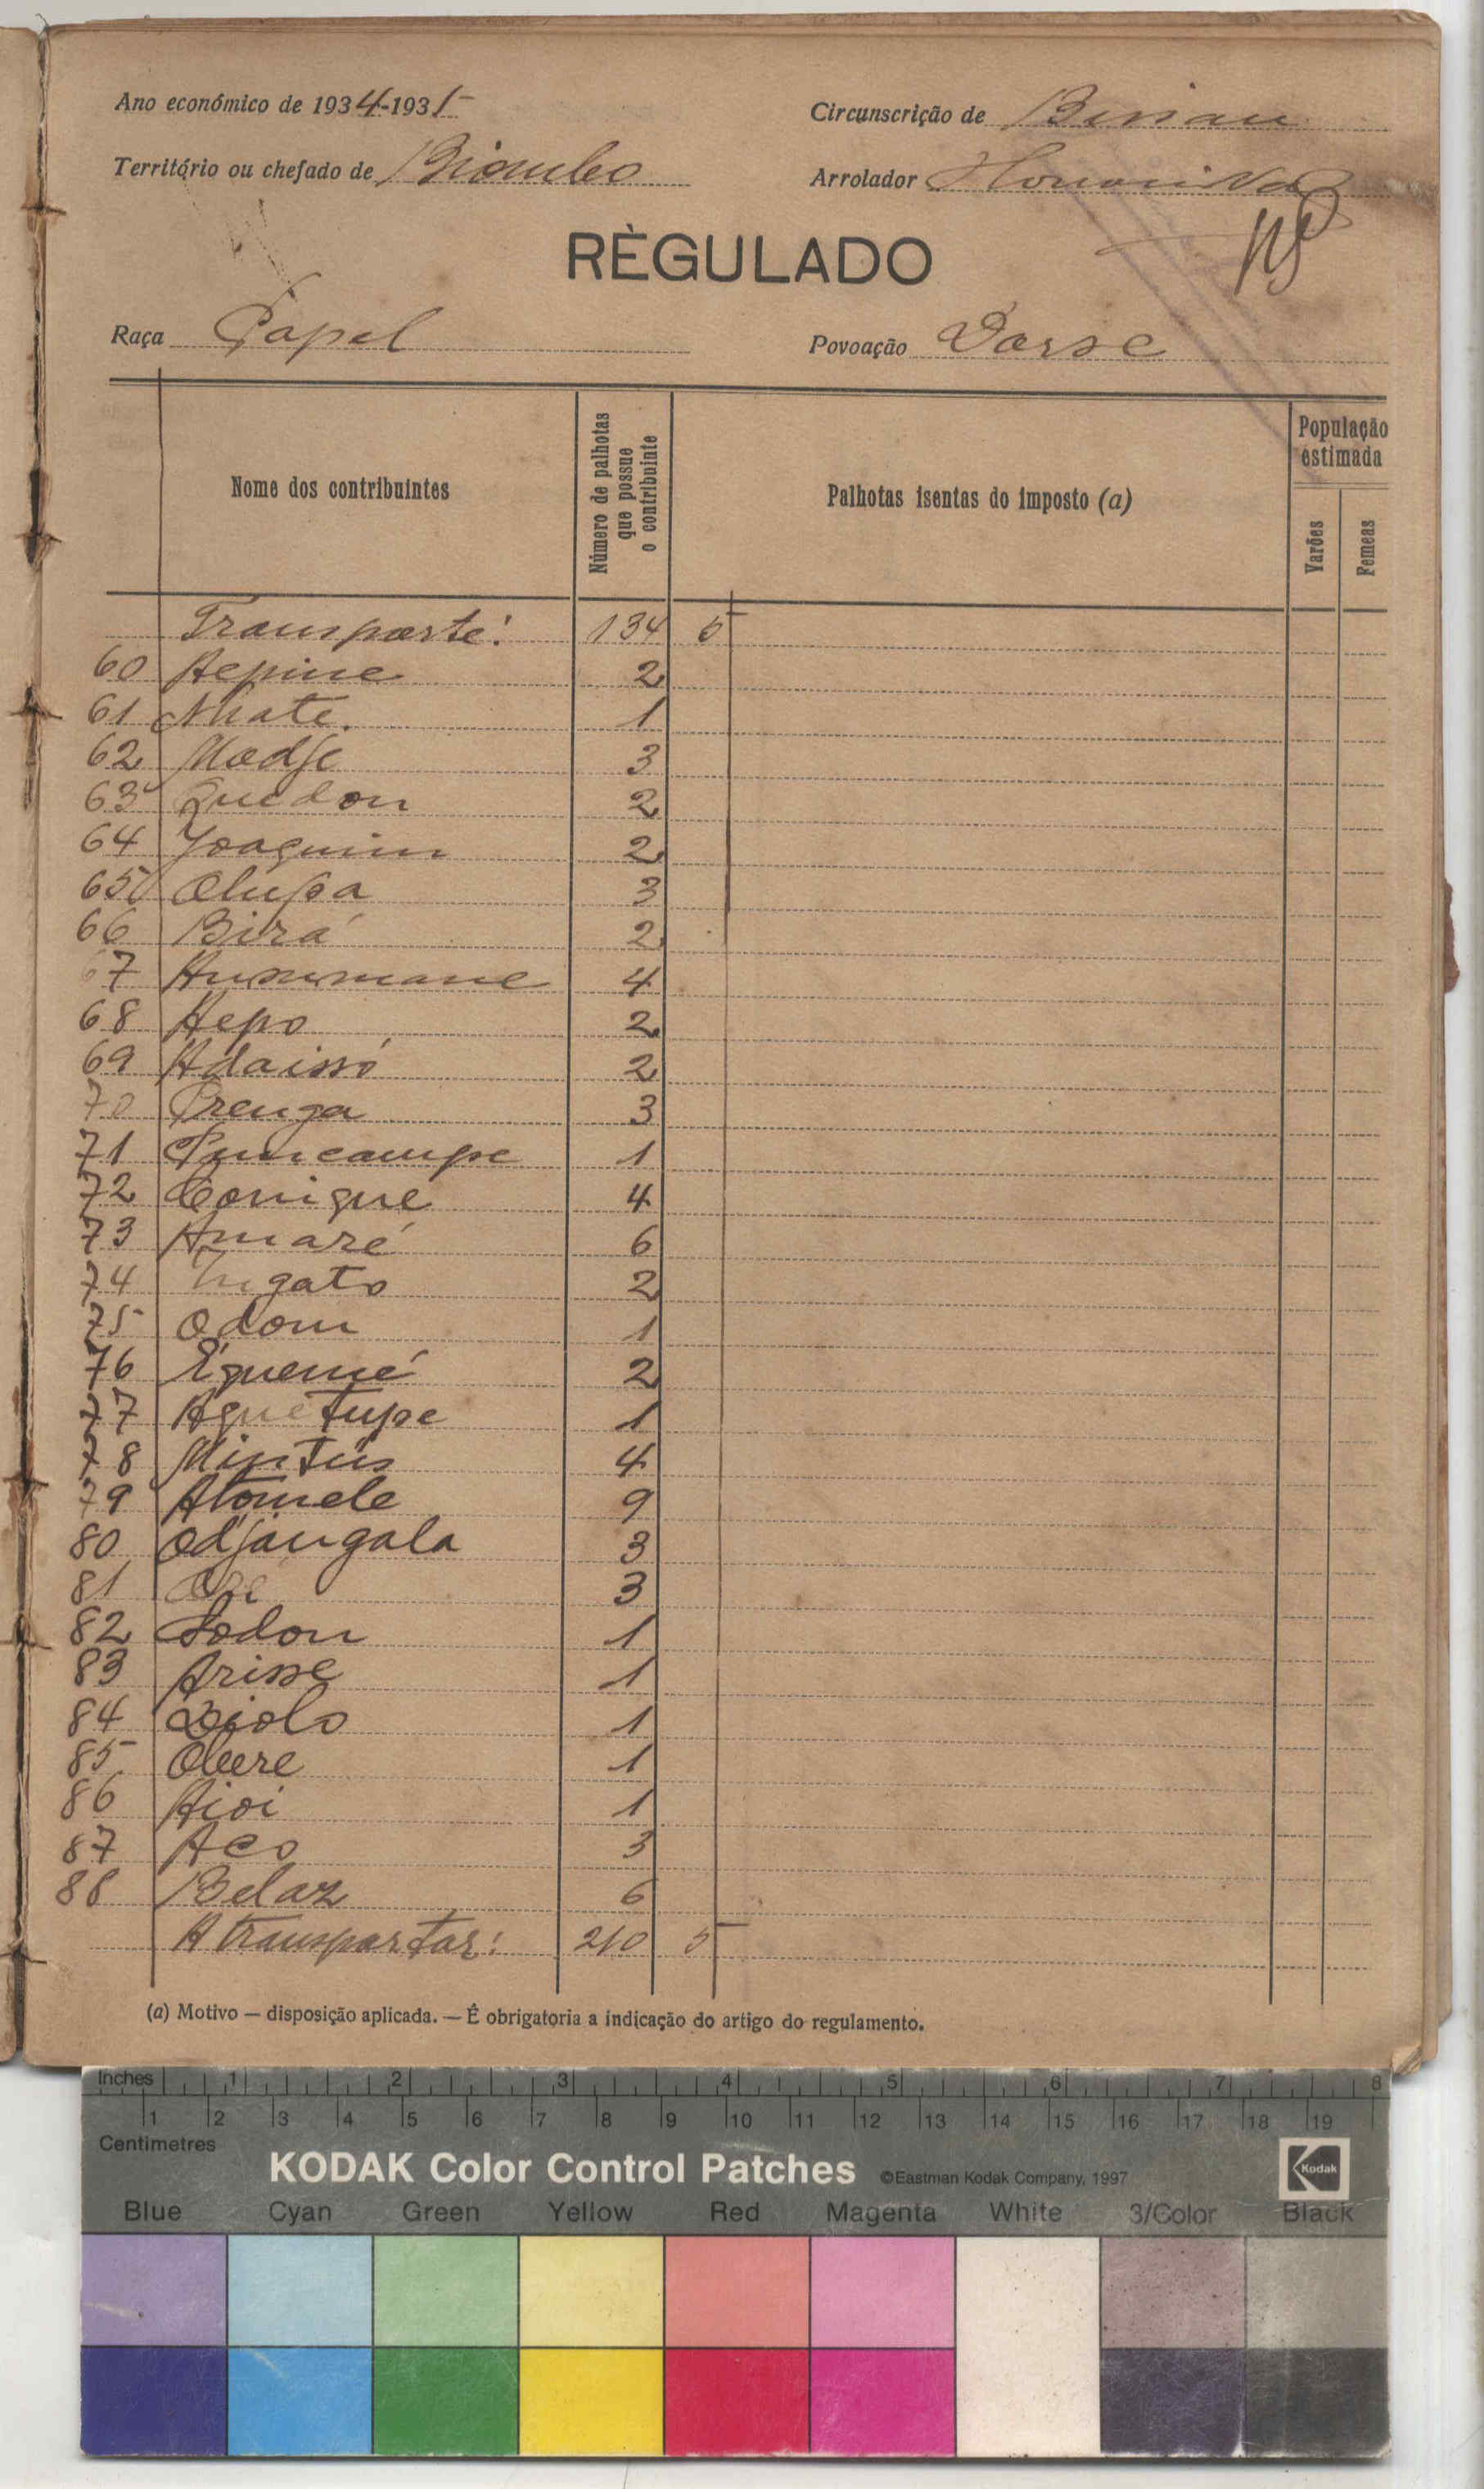 Ano económico de 1934-1935
Circunscrição de Bissau
Território ou chefado de Biombo
Arrolador
RÈGULADO
Raça Papel
Povoação Dorse
Nome dos contribuintes
Número de palhotas que possue o contribuinte
Palhotas isentas do imposto (a)
População estimada
Varões
Femeas
Transporte: 134 5
60 Aepine 2
61 Nhate 1
62 Madje 3
63 Quedou 2
64 Joaquim 2
65 Olupa 3
66 Birá 2
67 4
68 Aepo 2
69 Adaissó 2
70 Prenga 3
71 1
72 Conique 4
73 Amaré 6
74 Ingato 2
75 Odom 1
76 Equemé 2
77 Aguetupe 1
78 Mintús 4
79 Atomele 9
80 Odjangala 3
81 3
82 Sodou 1
83 Arisse 1
84 Diolo 1
85 Obere 1
86 Aioi 1
87 Aco 3
88 Belaz 6
A transportar: 210 5
(a) Motivo — disposição aplicada. — É obrigatoria a indicação do artigo do regulamento.
Inches 1 2 3 4 5 6 7 8
1 2 3 4 5 6 7 8 9 10 11 12 13 14 15 16 17 18 19
Centimetres
KODAK Color Control Patches ©Eastman Kodak Company, 1997 Kodak
Blue Cyan Green Yellow Red Magenta White 3/Color Black